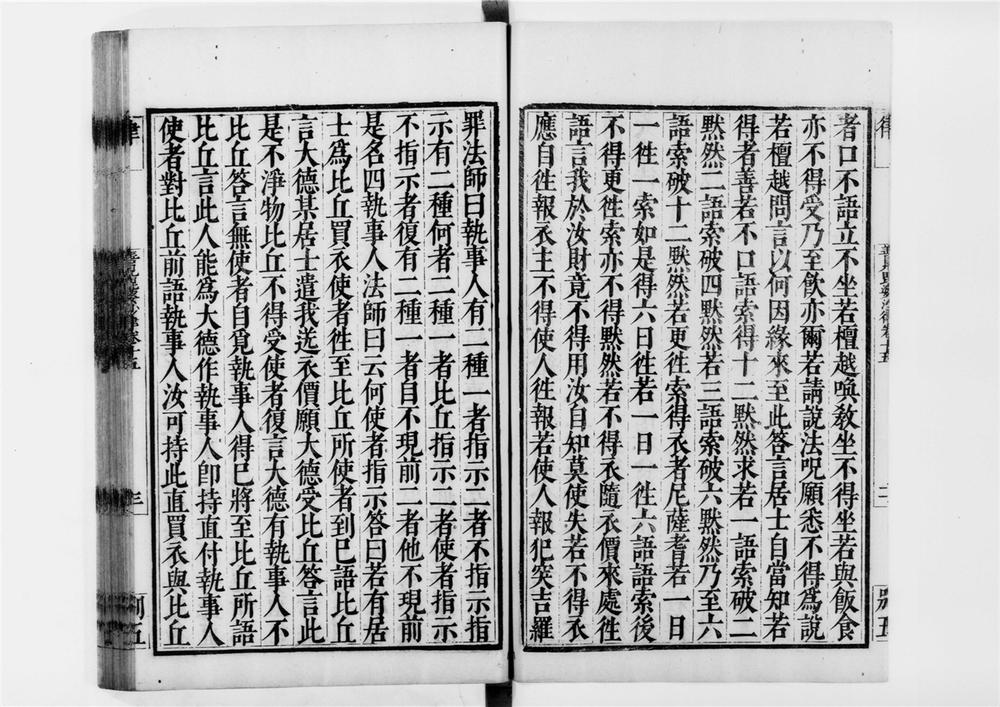 者口不語立不坐若檀越喚敎坐不得坐若與飯食
亦不得受乃至飮亦爾若請說法呪願悉不得爲說
若檀越問言以何因緣來至此答言居士自當知若
得者善若不口語索得十二默然求若一語索破二
默然二語索破四默然若三語索破六默然乃至六
語索破十二默然若更徃索得衣者尼薩耆若一日
一徃一索如是得六日徃若一日一徃六語語索後
不得更徃索亦不得默然若不得衣隨衣價來處徃
語言我於汝財竟不得用汝自知莫使失若不得衣
應自徃報衣主不得使人徃報若使人報犯突吉羅
罪法師曰執事人有二種一者指示二者不指示指
示有二種何者二種一者比丘指示二者使者指示
不指示者復有二種一者自不現前二者他不現前
是名四執事人法師曰云何使者指示答曰若有居
士爲比丘買衣使者徃至比丘所使者到已語比丘
言大德某居士遣我送衣價願大德受比丘答言此
是不淨物比丘不得受使者復言大德有執事人不
比丘答言無使者自覓執事人得已將至比丘所語
比丘言此人能爲大德作執事人卽持直付執事人
使者對比丘前語執事人汝可持此直買衣與比丘
律
三